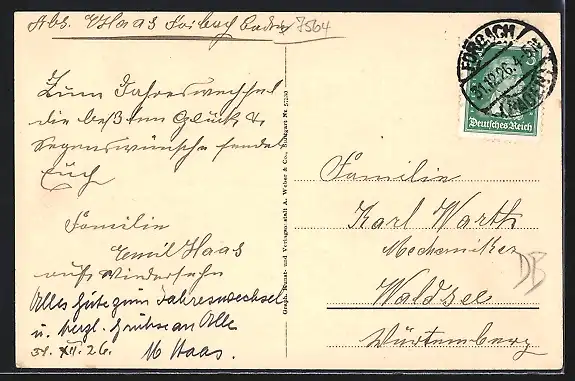 Abs. E. Haas Forbach Baden
7564
Zum Jahreswechsel
die beßten Glück &
Segenswünsche sendet
Euch
Familie
Emil Haas
aufs Wiedersehn
Alles Gute zum Jahreswechsel
u. herzl. Grüße an Alle
31. XII. 26. M Haas.
Graph. Kunst- und Verlagsanstalt A. Weber & Co., Stuttgart Nr.
FORBACH
31.12.26.4-5
(BADEN)
Deutsches Reich
Familie
Karl Warth
Mechaniker
DB
Waldsee
Württemberg